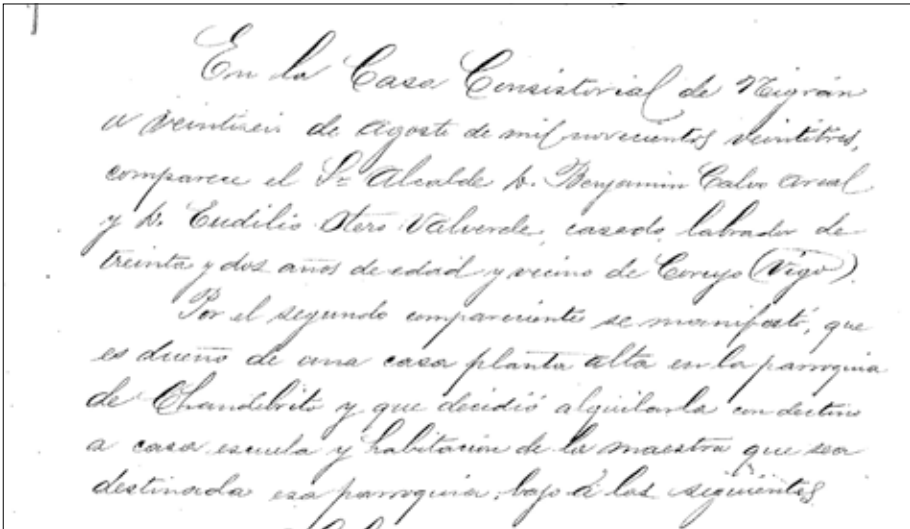 En la Casa Consistorial de Nigrán
a veintiseis de Agosto de mil novecientos veintitres,
comparece el Sr Alcalde D. Benjamin Calvo Areal
y D. Eudilio Otero Valverde, casado, labrador de
treinta y dos años de edad y vecino de Corujo (Vigo).
Por el segundo compareciente se manifestó, que
es dueño de una casa planta alta en la parroquia
de Chandebrito y que decidió alquilarla con destino
a casa escuela y habitación de la maestra que sea
destinada esa parroquia, bajo á las siguientes